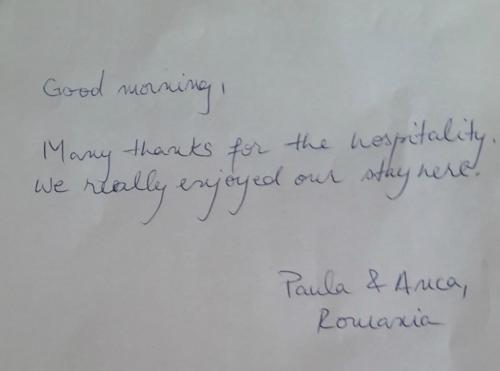 Good morning,
Many thanks for the hospitality.
We really enjoyed our stay here.
Paula & Anca,
Romania